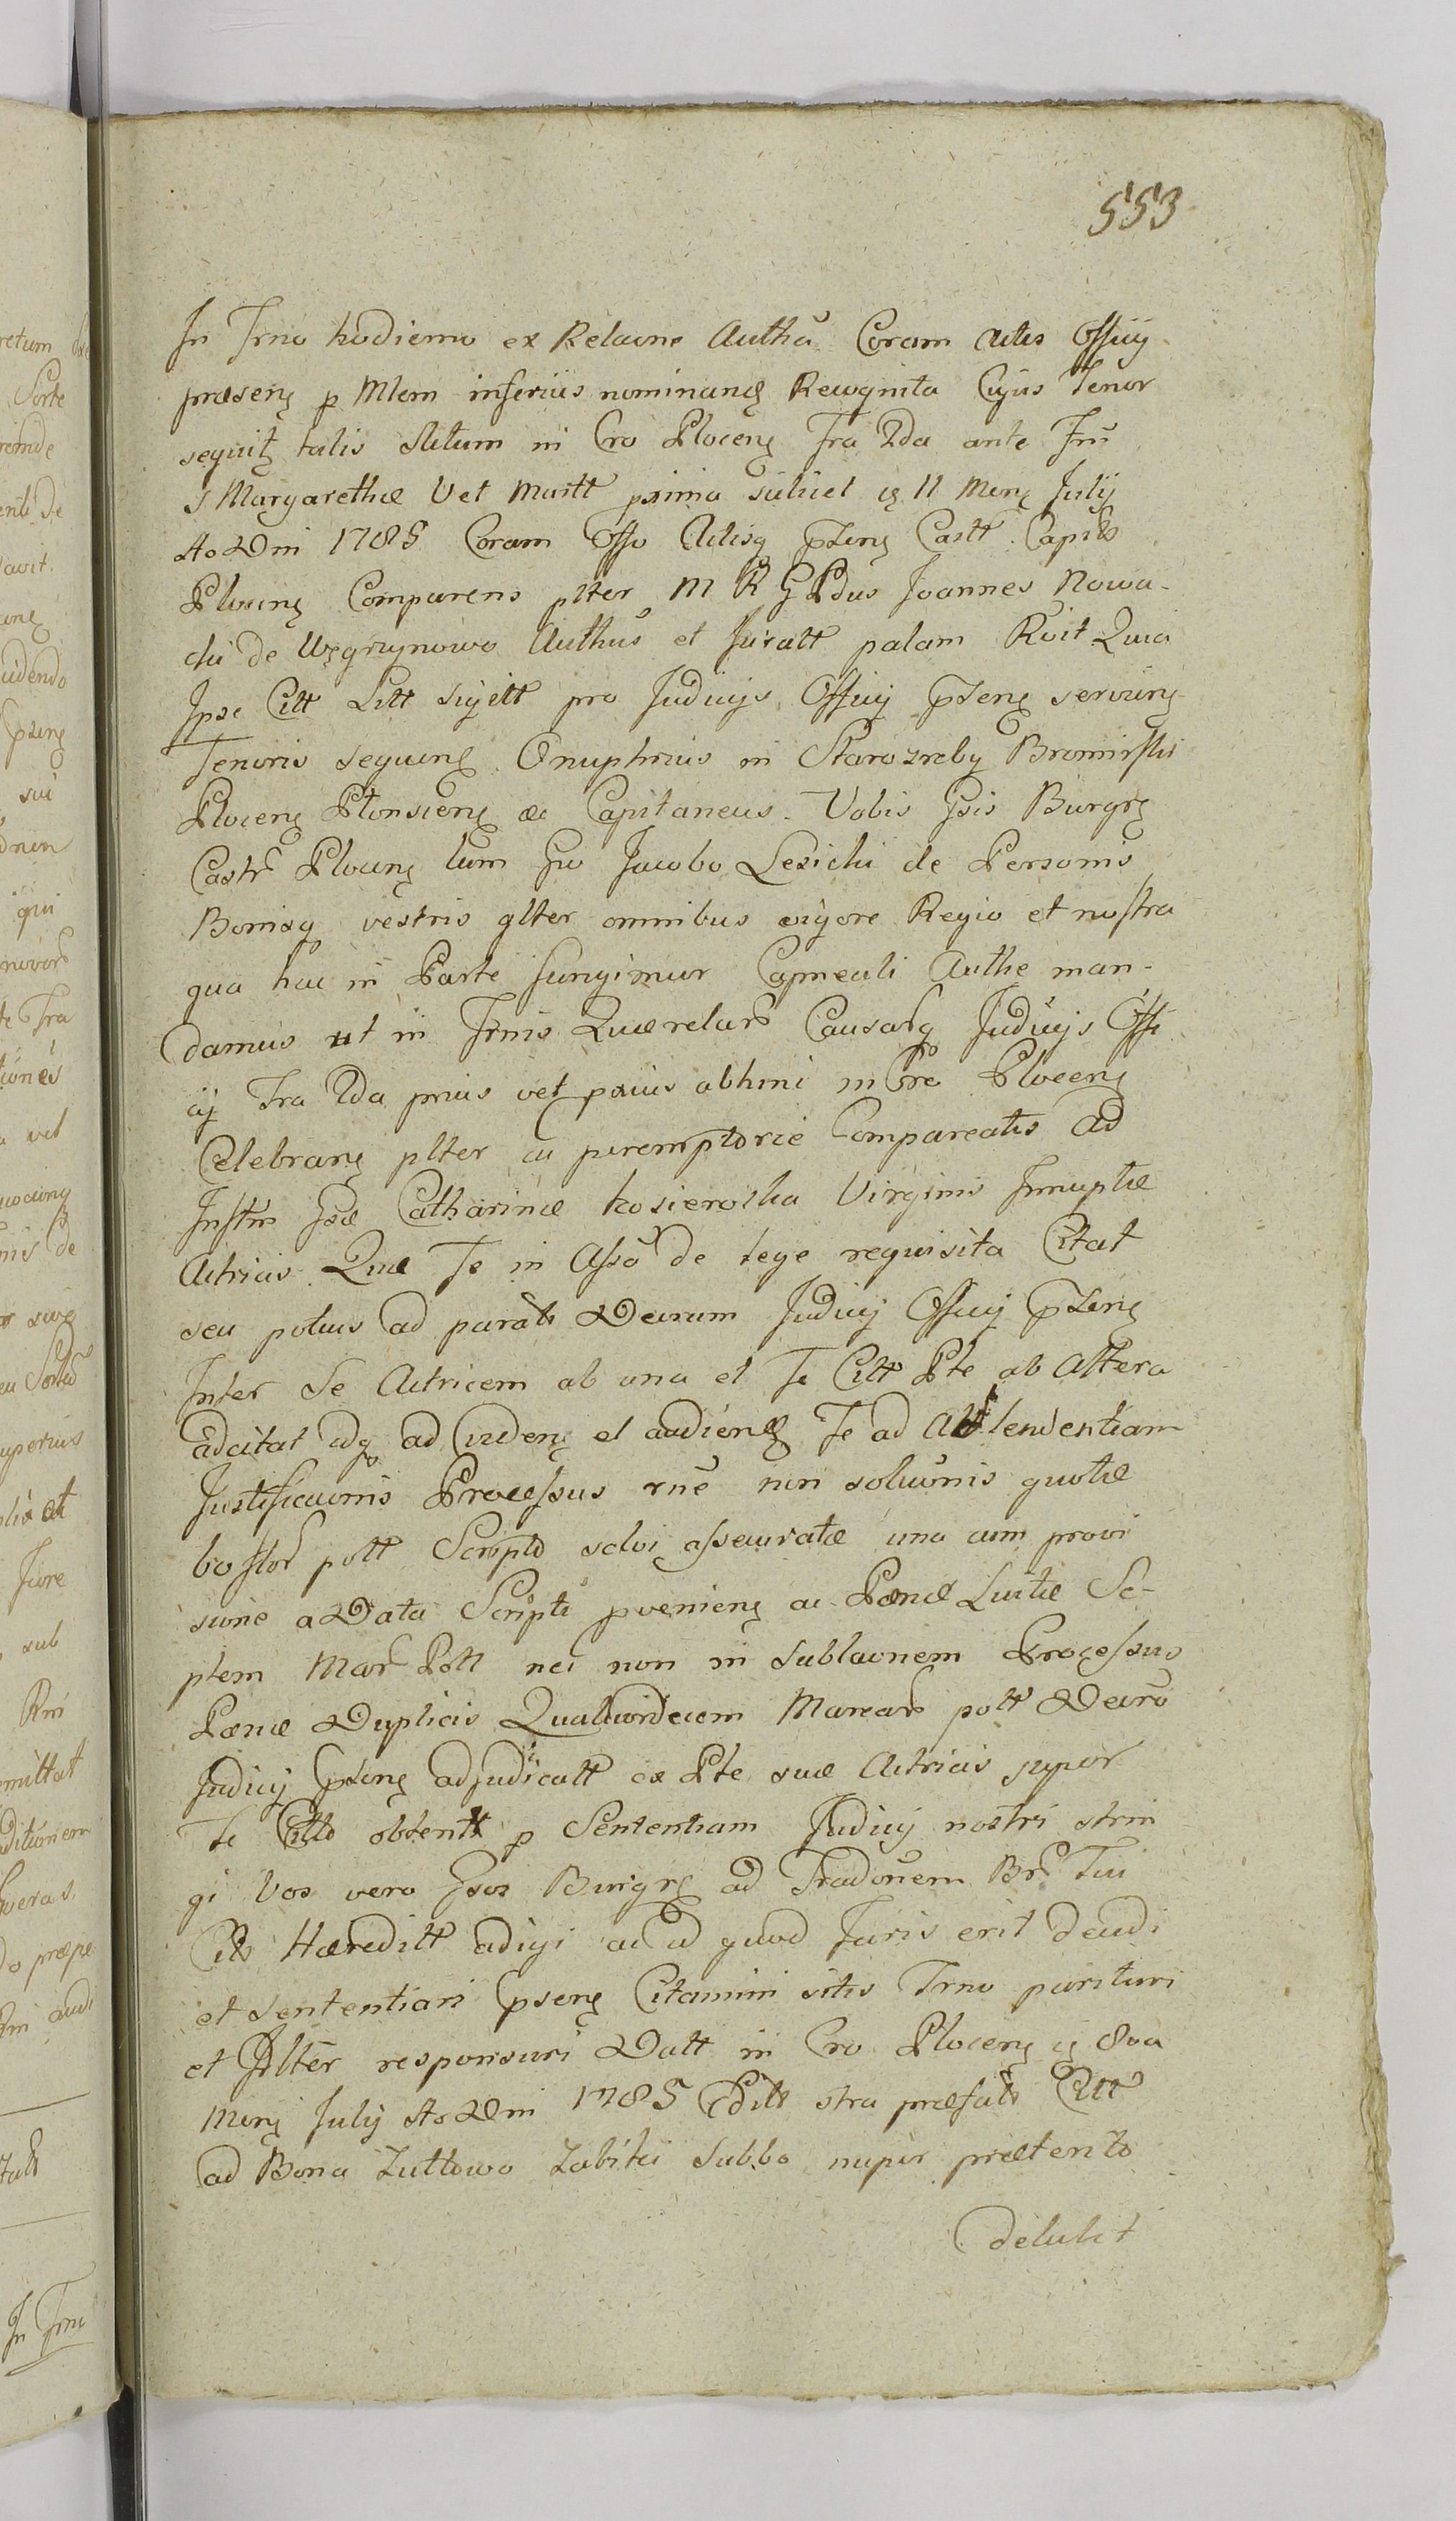 553
In Trno hodierno ex Relaone Authñ Coram Actis Officij
præseng p Mlem inferius nominang Recognita Cujus Tenor
sequitg talis Actum in Cro Ploceng Fra 2da ante Frñ
S Margarethæ Vet Martt proxima scilicet ig 11 Meng Julij
Ao Dni 1785 Coram Offo Actisq pteng Castt Capits
Ploceng Comparens plter M R G Pdus Joannes Nowa-
cki de Węgrzynowo Authñs et Juratt palam Rvit Quia
Ipse Citt Litt Sigitt pro Judicijs Officij pteng serving
Tenoris sequeng Onuphrius in Starozreby Bromirski
Ploceng Plonsceng &c Capitaneus. Vobis Gsis Burgrg
Castr Ploceng tum Gso Jacobo Lesicki de Personis
Bonisq vestris glter omnibus vigore Regio et nostra
qua hac in Parte fungimur Capneali Authe man-
damus ut in Trnis Quærelars Causarq Judicijs Offi
cij Fra 2da prius vel pxius abhinc in Cro Ploceng
Celebrang plter ac peremptorie Compareatis Ad
Instm Gsæ Catharinæ Kosierowska Virginis Innuptæ
Actricis Quæ Te in Assã de lege requisita Citat
seu potius ad parats Decrum Judicij Officij pteng
Inter Se Actricem ab una et Te Citt Pte ab Altera
adcitat idq ad videng et audieng Te ad Attendentiam
Justificaonis Processus rñe non soluonis quotæ
bo flor poll Scripto solvi assecuratæ una cum provi
sione a Data Scripti pvenieng ac Pænæ Luitæ Se-
ptem Mar Poll nec non in Sublaonem Processus
Pænæ Duplicis Quatuordecem Marcars poll Decro
Judicij pteng adjudicatt ex Pte suæ Actricis super
Te Citto obtentt p Sententiam Judicij nostri strin
gi Vos vero Gsos Burgrg ad Tradonem Br Tui
Cits Hæreditt adigi ac id quod Juris erit decidi
et sententiari pseng Citamini sitis Trno parituri
et Jdlter responsuri Datt in Cro Ploceng ig 8va
Meng Julij Ao Dni 1785 Edits ctra præfats Citt
ad Bona Żułtowo Zabitki Subbo nuper præterito
detulit